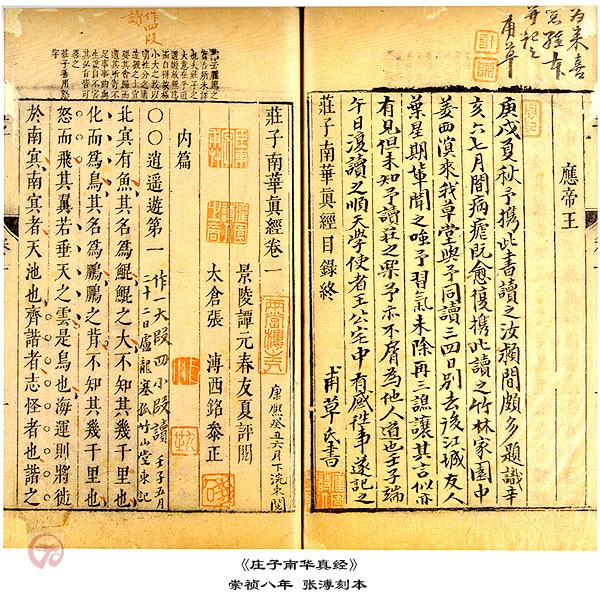 甫草
應帝王
庚戌夏秋予携此書讀之汝潁間頗多題識辛
亥六七月間病瘧既愈復携此讀之竹林家園中
姜西溟來我草堂與予同讀三四日別去後江城友人
葉星期輩聞之唯予習氣未除再三譙讓其言似亦
有見但未知予讀莊之樂予亦不屑為他人道也壬子端
午日復讀之順天學使者王公宅中有感往事遂記之
甫草氏書
莊子南華眞經目錄終
作四段
莊子南華眞經卷一
景陵譚元春友夏評閱
太倉張 溥西銘叅正
康熙癸丑六月下浣東閱
內篇
○○逍遙遊第一
作一大段四小段讀 壬子五月
二十二日盧龍塞孤竹山堂東記
北冥有魚其名爲鯤鯤之大不知其幾千里也
化而爲鳥其名爲鵬鵬之背不知其幾千里也
怒而飛其翼若垂天之雲是鳥也海運則將徙
於南冥南冥者天池也齊諧者志怪者也諧之
《庄子南华真经》
崇祯八年 张溥刻本